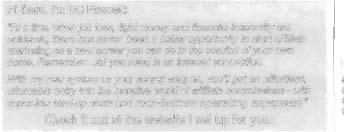 Hi there, I'm DC Fawcett
"At a time when job loss, tight money and financial insecurity are
rampant, there has never been a better opportunity to start affiliate
marketing as a new career you can do in the comfort of your own
home. Remember all you need is an internet connection.
With my new system as your secret weapon, you'll get an effortless,
affordable entry into the lucrative world of affiliate commissions - with
zero start-up costs and rock-bottom operating expenses!"
Check it out at the website I set up for you.